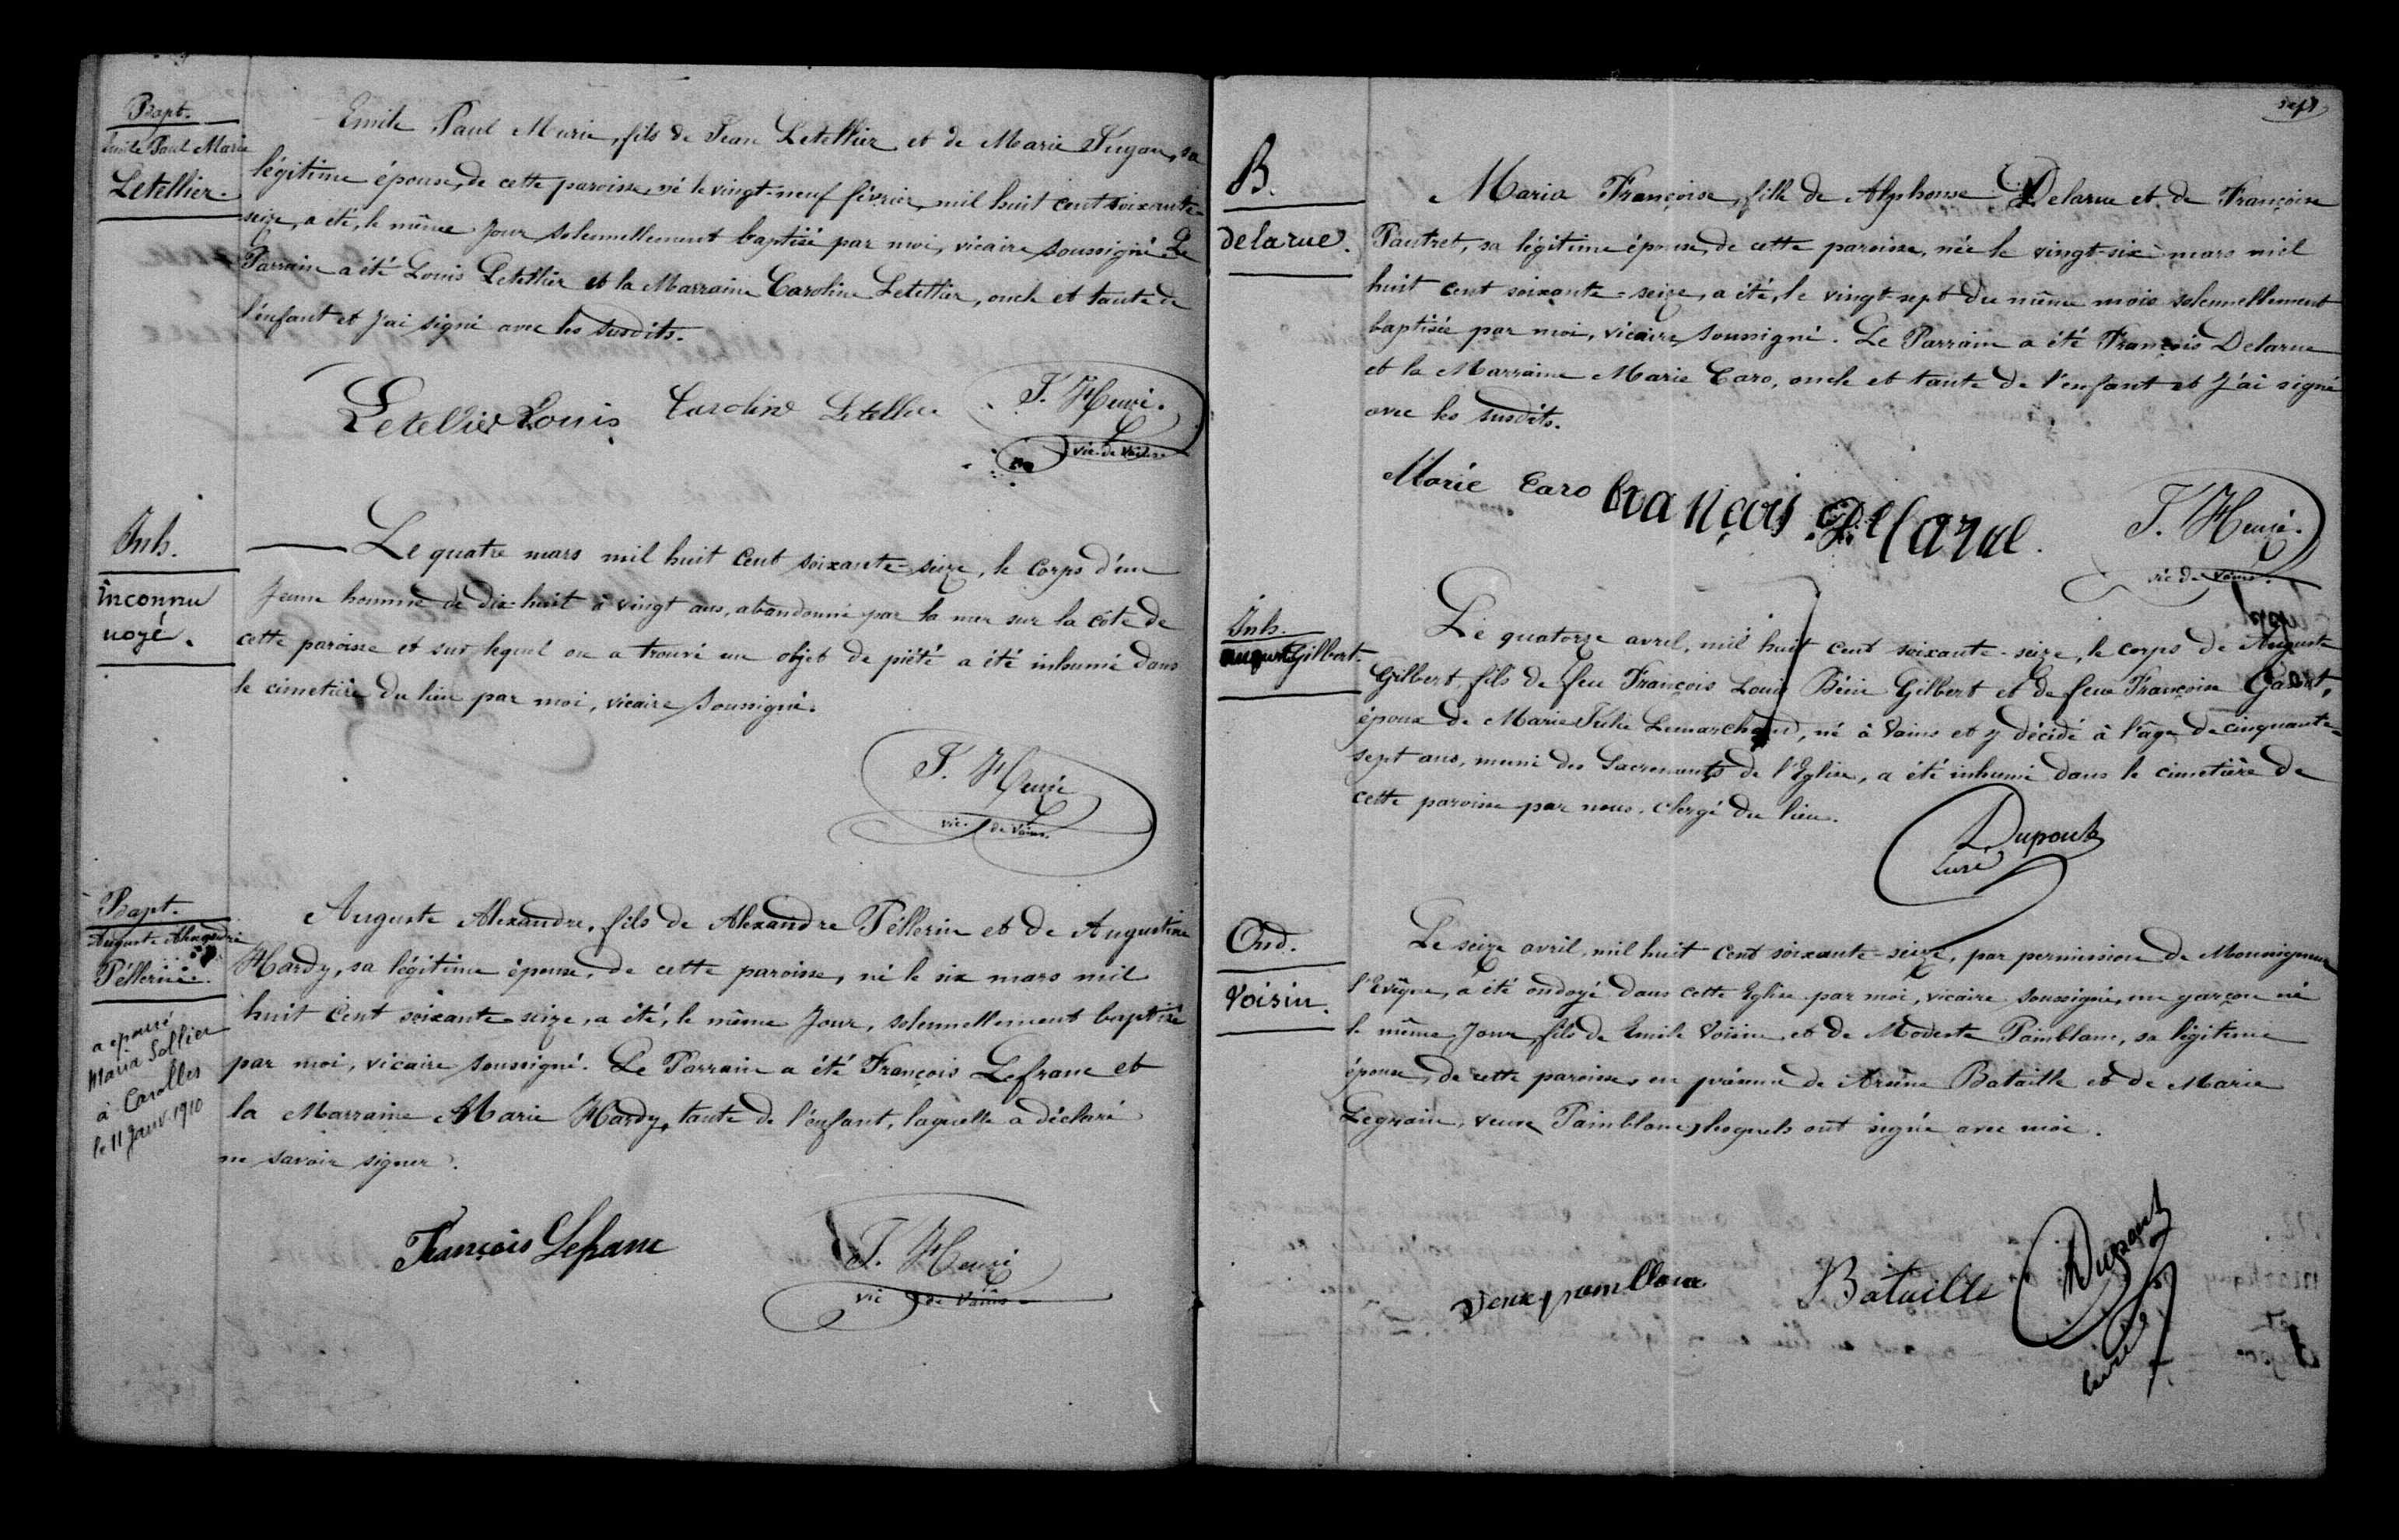 Bapt.
Emile Paul Marie
Letellier.
Emile Paul Marie, fils de Jean Letellier et de Marie sa
légitime épouse, de cette paroisse, né le vingt-neuf février, mil huit cent soixante-
seize, a été, le même Jour solennellement baptisé par moi, vicaire soussigné. Le
Parrain a été Louis Letellier et la Marraine Caroline Letellier, oncle et tante de
l'enfant et J'ai signé avec les susdits.
Letellier Louis Caroline Letellier
vic. de Vains
Inh.
inconnu
noyé.
Le quatre mars mil huit cent soixante-seize, le corps d'un
Jeune homme de dix-huit à vingt ans, abandonné par la mer sur la côte de
cette paroisse et sur lequel on a trouvé un objet de piété a été inhumé dans
le cimetière du lieu par moi, vicaire soussigné.
vic. de Vains.
Bapt.
Auguste Alexandre
Péllerin.
a epousé
Maria Sollier
à Carolles
le 11 Janv. 1910
Auguste Alexandre, fils de Alexandre Péllerin et de Augustine
Hardy, sa légitime épouse, de cette paroisse, né le six mars mil
huit cent soixante-seize, a été, le même Jour, solennellement baptisé
par moi, vicaire soussigné. Le Parrain a été François Lefranc et
la Marraine Marie Hardy, tante de l'enfant, laquelle a déclaré
ne savoir signer.
François Lefranc
vic de Vains
sept
B.
delarue.
Maria Françoise, fille de Alphonse Delarue et de Françoise
Pautret, sa légitime épouse, de cette paroisse, née le vingt-six mars mil
huit cent soixante-seize, a été, le vingt-sept du même mois solennellement
baptisée par moi, vicaire soussigné. Le Parrain a été François Delarue
et la Marraine Marie Caro, oncle et tante de l'enfant et J'ai signé
avec les susdits.
Marie Caro François Delarue.
vic de Vains.
Inh.
auguste Gilbert.
Le quatorze avril, mil huit cent soixante-seize, le corps de Auguste
Gilbert, fils de feu François Louis Gilbert et de feue Françoise
époux de Marie Julie Lemarchand, né à Vains et y décédé à l'âge de cinquante-
sept ans, muni des Sacrements de l'Eglise, a été inhumé dans le cimetière de
cette paroisse par nous, clergé du lieu.
Dupont
curé
Ond.
Voisin.
Le seize avril, mil huit cent soixante-seize, par permission de Monseigneur
l'Evêque, a été ondoyé dans cette Eglise par moi, vicaire soussigné, un garçon né
le même Jour, fils de Emile Voisin et de Modeste Painblanc, sa légitime
épouse, de cette paroisse, en présence de Arsène Bataille et de Marie
Legrain, veuve Painblanc, lesquels ont signé avec moi.
Bataille Dupont
curé